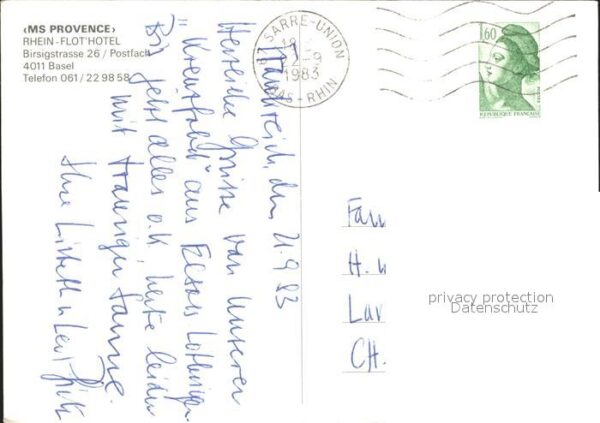 ‹MS PROVENCE›
RHEIN-FLOT'HOTEL
Birsigstrasse 26 / Postfach
4011 Basel
Telefon 061/22 98 58
SARRE-UNION
1983
BAS-RHIN
1,60
REPUBLIQUE FRANÇAISE
Frankreich, den 21.9.83
Herzliche Grüsse von unserer
"Kreuzfahrt" aus Elsass Lothringen.
Bis jetzt alles o.k, heute leider
mit trauriger Sonne.
Ihre Lisbeth u.
Fam
H. u
Lau
CH.
privacy protection
Datenschutz